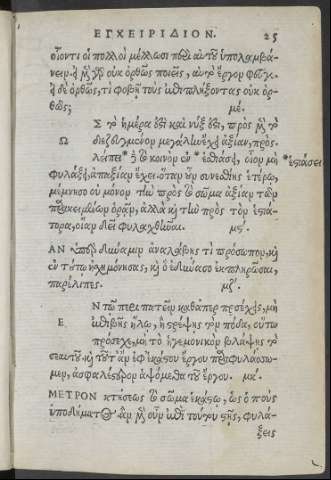 ΕΓΧΕΙΡΙΔΙΟΝ. 25
οἴονται οἱ πολλοὶ μέλλωσι περὶ αὐτοῦ ὑπολαμβά-
νειν. εἰ μὲν γὰρ οὐκ ὀρθῶς ποιεῖς, αὐτὸ τὸ ἔργον φεῦγε.
εἰ δὲ ὀρθῶς, τί φοβῇ τοὺς ἐπιπλήξοντας οὐκ ὀρ-
θῶς; με.
Σ τὸ ἡμέρα ἐστὶ καὶ νύξ ἐστι, πρὸς μὲν τὸ
Ω διεζευγμένον μεγάλην ἔχει ἀξίαν, πρὸς
τὸ κοινωνικὸν ἐν *ἑστιάσει, οἷον μὲν *ἑστιάσει
φυλάξαι, ἀπαξίαν ἔχει. ὅταν οὖν συνεσθίῃς ἑτέρῳ,
μέμνησο οὐ μόνον τὴν πρὸς τὸ σῶμα ἀξίαν τῶν
παρακειμένων ὁρᾶν, ἀλλὰ καὶ τὴν πρὸς τὸν ἑστιά-
τορα, οἵαν δεῖ φυλαχθῆναι. μϛ.
ΑΝ ὑπὲρ δύναμιν ἀναλάβῃς τι πρόσωπον, καὶ
ἐν τούτῳ ἠσχημόνησας, καὶ ὃ ἐδύνασο ἐκπληρῶσαι,
παρέλιπες. μζ.
Ν τῷ περιπατεῖν καθάπερ προσέχεις, μὴ
Ε. ἐπιβῇς ἥλῳ, ἢ στρέψῃς τὸν πόδα, οὕτω
πρόσεχε, μὴ τὸ ἡγεμονικὸν βλάψῃς τὸ
σεαυτοῦ. καὶ τοῦτ' ἂν ἐφ' ἑκάστου ἔργου παραφυλάσσω-
μεν, ἀσφαλέστερον ἁψόμεθα τοῦ ἔργου. μη.
ΜΕΤΡΟΝ κτήσεως τὸ σῶμα ἑκάστῳ, ὡς ὁ ποὺς
ὑποδήματος. ἂν μὲν οὖν ἐπὶ τούτου στῇς, φυλά-
ξεις